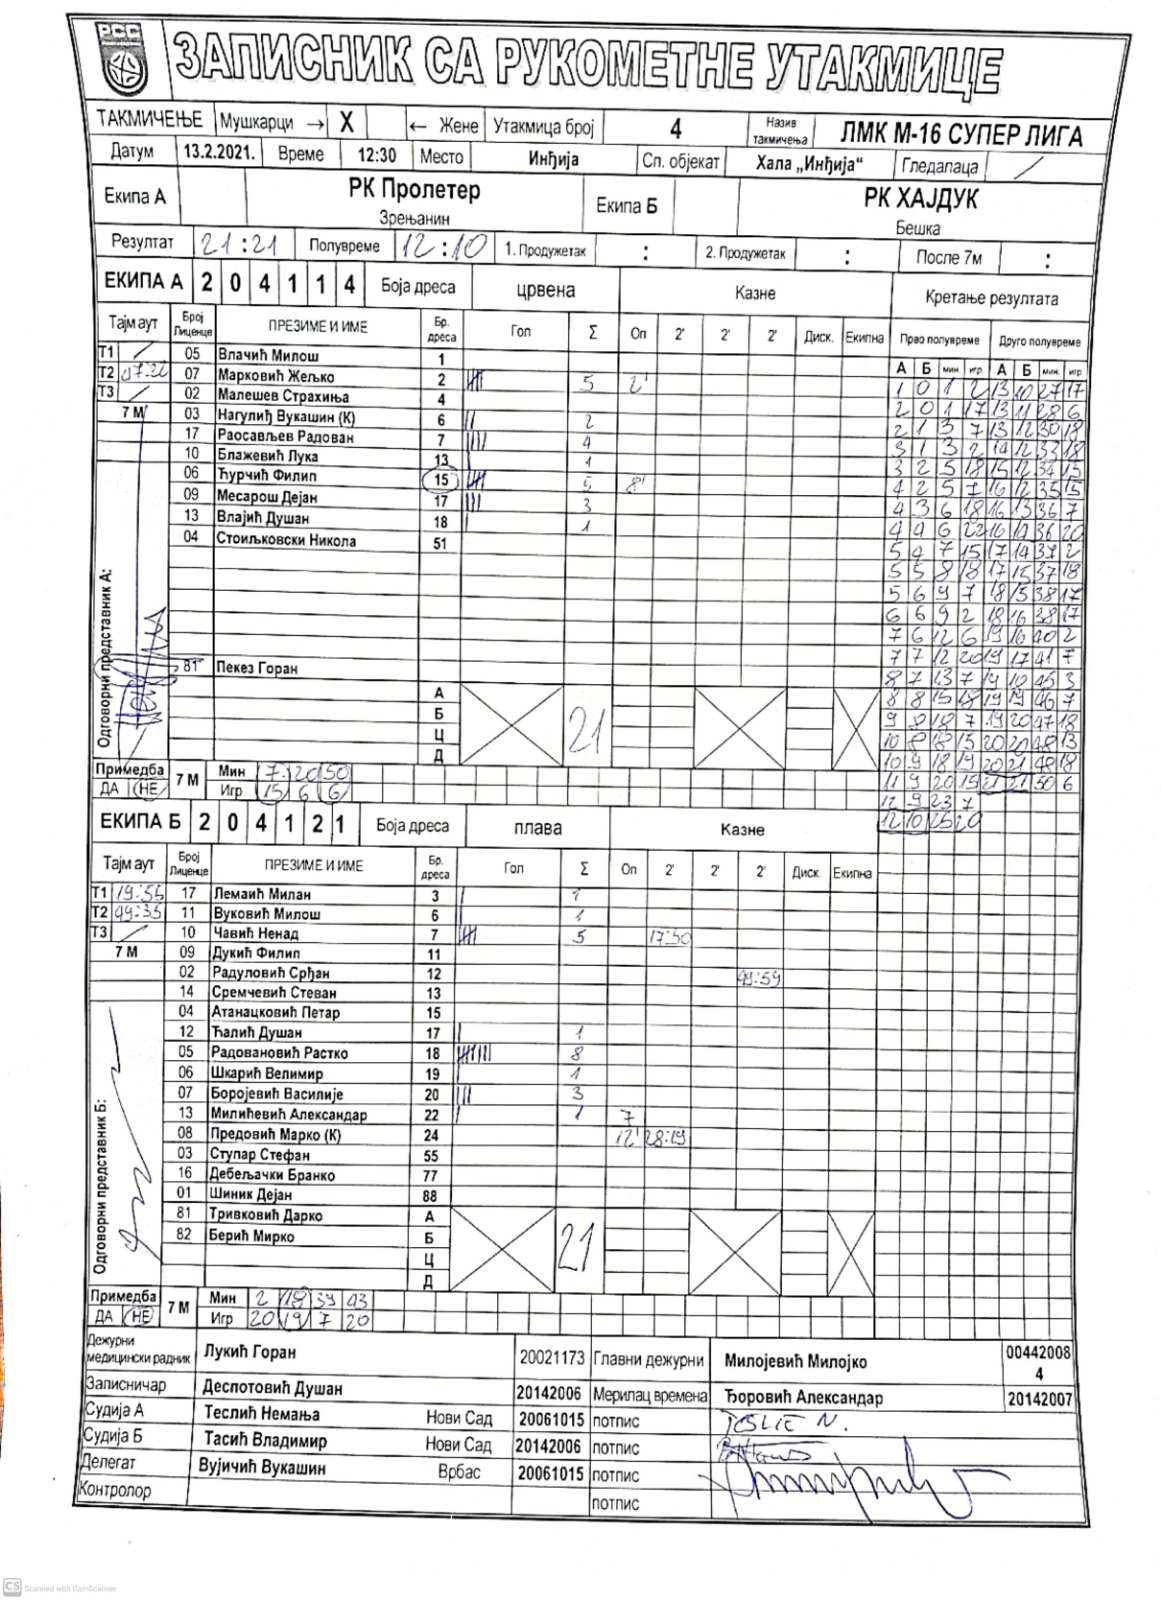 РСС
ЗАПИСНИК СА РУКОМЕТНЕ УТАКМИЦЕ
ТАКМИЧЕЊЕ Мушкарци → X ← Жене Утакмица број 4 Назив такмичења ЛМК М-16 СУПЕР ЛИГА
Датум 13.2.2021. Време 12:30 Место Инђија Сп. објекат Хала „Инђија“ Гледалаца /
Екипа А РК Пролетер Зрењанин Екипа Б РК ХАЈДУК Бешка
Резултат 21:21 Полувреме 12:10 1. Продужетак : 2. Продужетак : После 7м :
ЕКИПА А 2 0 4 1 1 4 Боја дреса црвена Казне Кретање резултата
Тајм аут Број Лиценце ПРЕЗИМЕ И ИМЕ Бр. дреса Гол Σ Оп 2' 2' 2' Диск. Екипна Прво полувреме Друго полувреме
А Б мин. игр. А Б мин. игр.
Т1 / 05 Влачић Милош 1
Т2 07 Марковић Жељко 2 5 2'
Т3 / 02 Малешев Страхиња 4
7 М 03 Нагулић Вукашин (К) 6 2
17 Раосављев Радован 7 4
10 Блажевић Лука 13 1
06 Ћурчић Филип 15 5 8'
09 Месарош Дејан 17 3
13 Влајић Душан 18 1
04 Стоиљковски Никола 51
Одговорни представник А:
81 Пекез Горан
А
Б
Ц
Д
21
1 0 1 2 13 10 27 17
2 0 1 17 13 11 28 6
2 1 3 7 13 12 30 18
3 1 3 2 14 12 33 18
3 2 5 18 15 12 34 15
4 2 5 7 16 12 35 15
4 3 6 18 16 13 36 7
4 4 6 22 16 14 36 20
5 4 7 15 17 14 37 2
5 5 8 18 17 15 37 18
5 6 9 7 18 15 38 17
6 6 9 2 18 16 38 17
7 6 12 6 19 16 40 2
7 7 12 20 19 17 41 7
8 7 13 7 45 3
8 8 15 18 19 19 46 7
9 8 18 7 19 20 47 18
10 8 18 15 20 20 48 13
10 9 18 19 20 21 48 18
11 9 20 15 21 21 50 6
12 9 23 7
12 10 25 20
Примедба ДА НЕ 7 М Мин 7 20 50
Игр 15 6 6
ЕКИПА Б 2 0 4 1 2 1 Боја дреса плава Казне
Тајм аут Број Лиценце ПРЕЗИМЕ И ИМЕ Бр. дреса Гол Σ Оп 2' 2' 2' Диск. Екипна
Т1 17 Лемаић Милан 3 1
Т2 49:35 11 Вуковић Милош 6 1
Т3 / 10 Чавић Ненад 7 5 17:50
7 М 09 Дукић Филип 11
02 Радуловић Срђан 12 49:59
14 Сремчевић Стеван 13
04 Атанацковић Петар 15
12 Ћалић Душан 17 1
05 Радовановић Растко 18 8
06 Шкарић Велимир 19 1
07 Боројевић Василије 20 3
13 Милићевић Александар 22 1 7
08 Предовић Марко (К) 24 12' 28:19
03 Ступар Стефан 55
16 Дебељачки Бранко 77
01 Шиник Дејан 88
81 Тривковић Дарко А
82 Берић Мирко Б
Ц
Д
21
Одговорни представник Б:
Примедба ДА НЕ 7 М Мин 2 18 39 43
Игр 20 19 7 20
Дежурни медицински радник Лукић Горан 20021173 Главни дежурни Милојевић Милојко 00442008 4
Записничар Деспотовић Душан 20142006 Мерилац времена Ђоровић Александар 20142007
Судија А Теслић Немања Нови Сад 20061015 потпис TESLIĆ N.
Судија Б Тасић Владимир Нови Сад 20142006 потпис
Делегат Вујичић Вукашин Врбас 20061015 потпис
Контролор потпис
CS Scanned with CamScanner